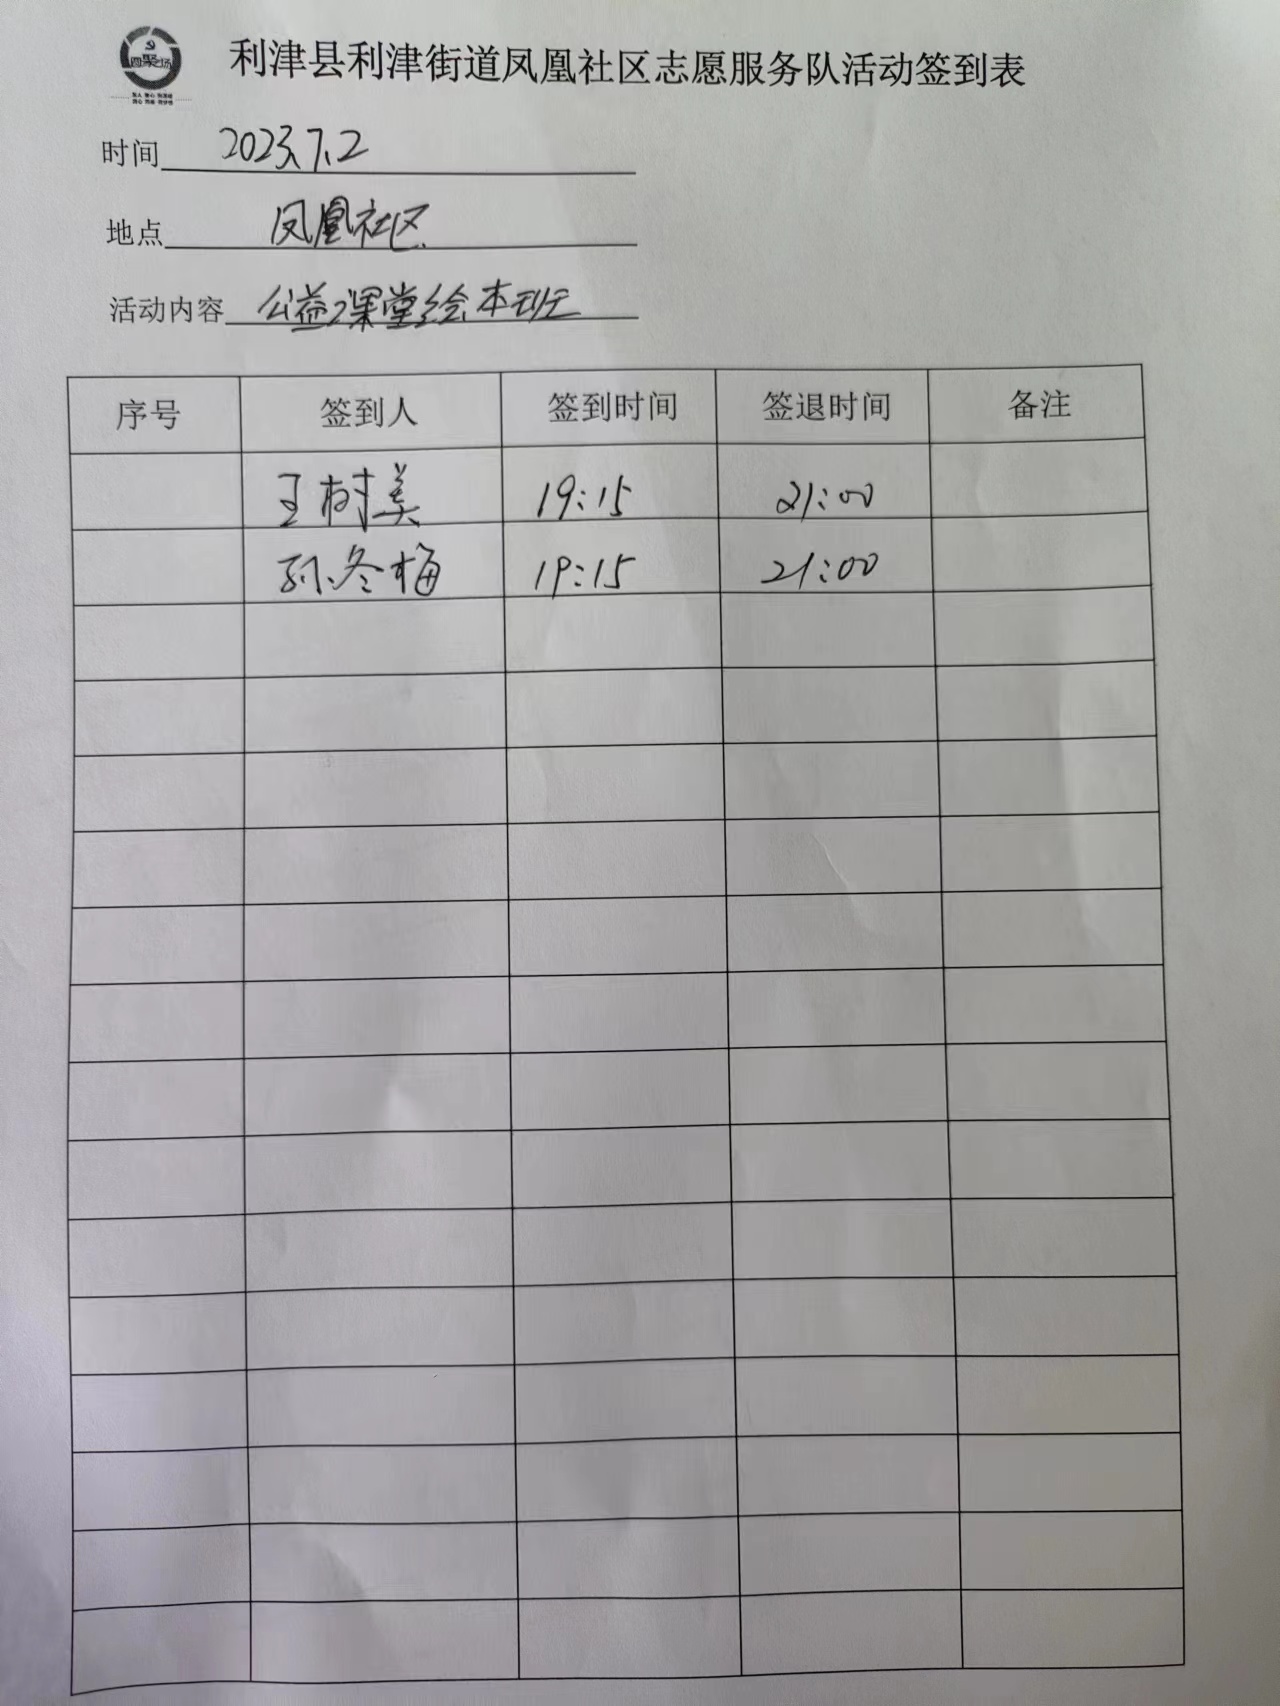 圆聚之场
利津县利津街道凤凰社区志愿服务队活动签到表
时间 2023.7.2
地点 凤凰社区
活动内容 公益课堂绘本班
序号 签到人 签到时间 签退时间 备注
王树美 19:15 21:00
孙冬梅 19:15 21:00